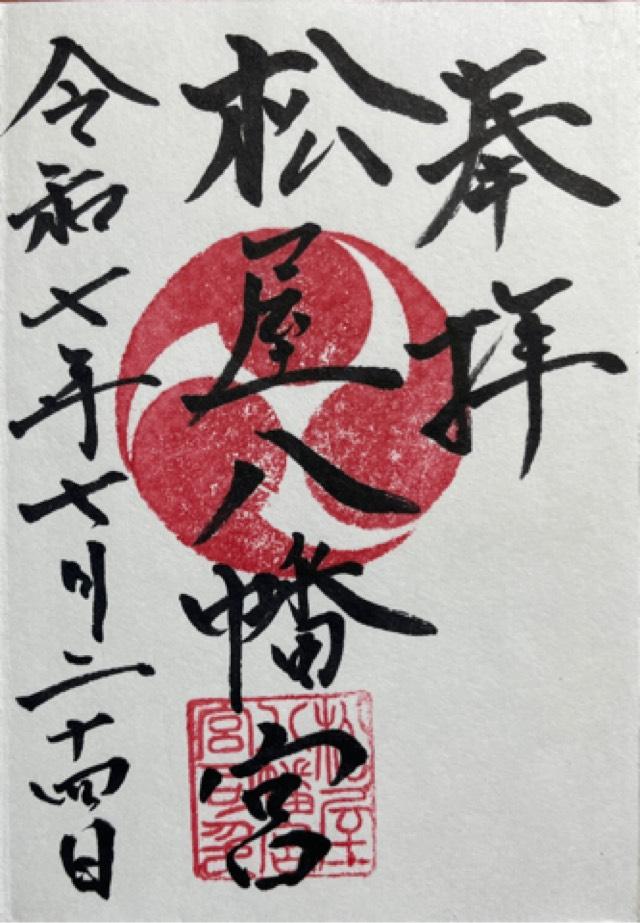 奉拝
松屋八幡宮
令和七年七月二十四日
松屋
八幡宮